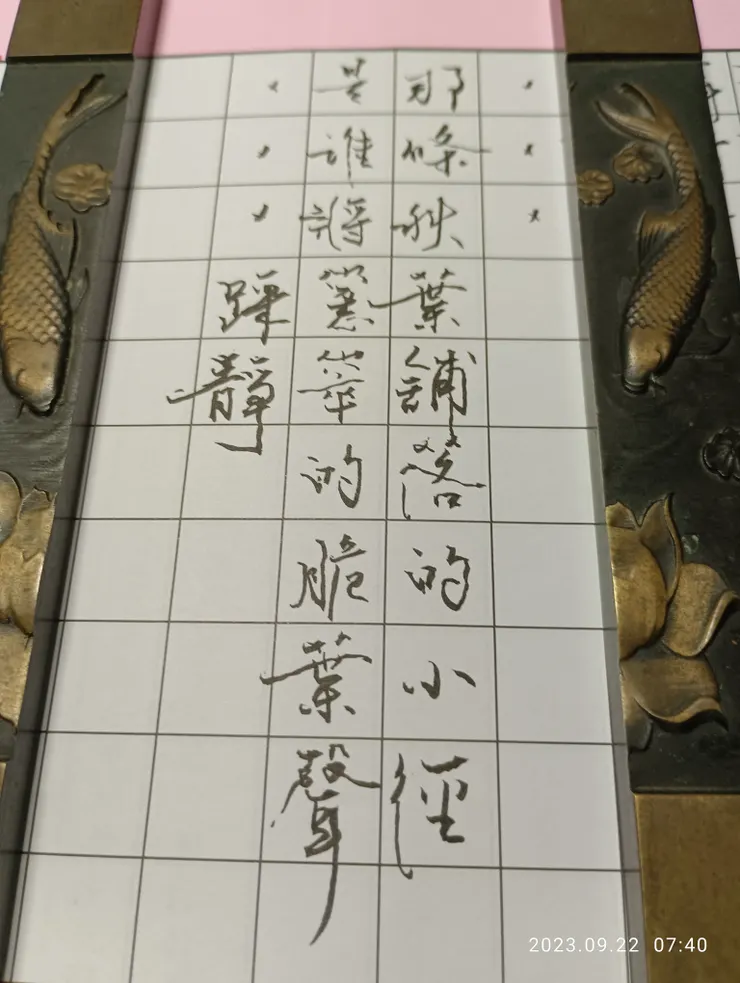 那條秋葉舖落的小徑
是誰將窸窣的脆葉聲
踩靜
2023.09.22 07:40